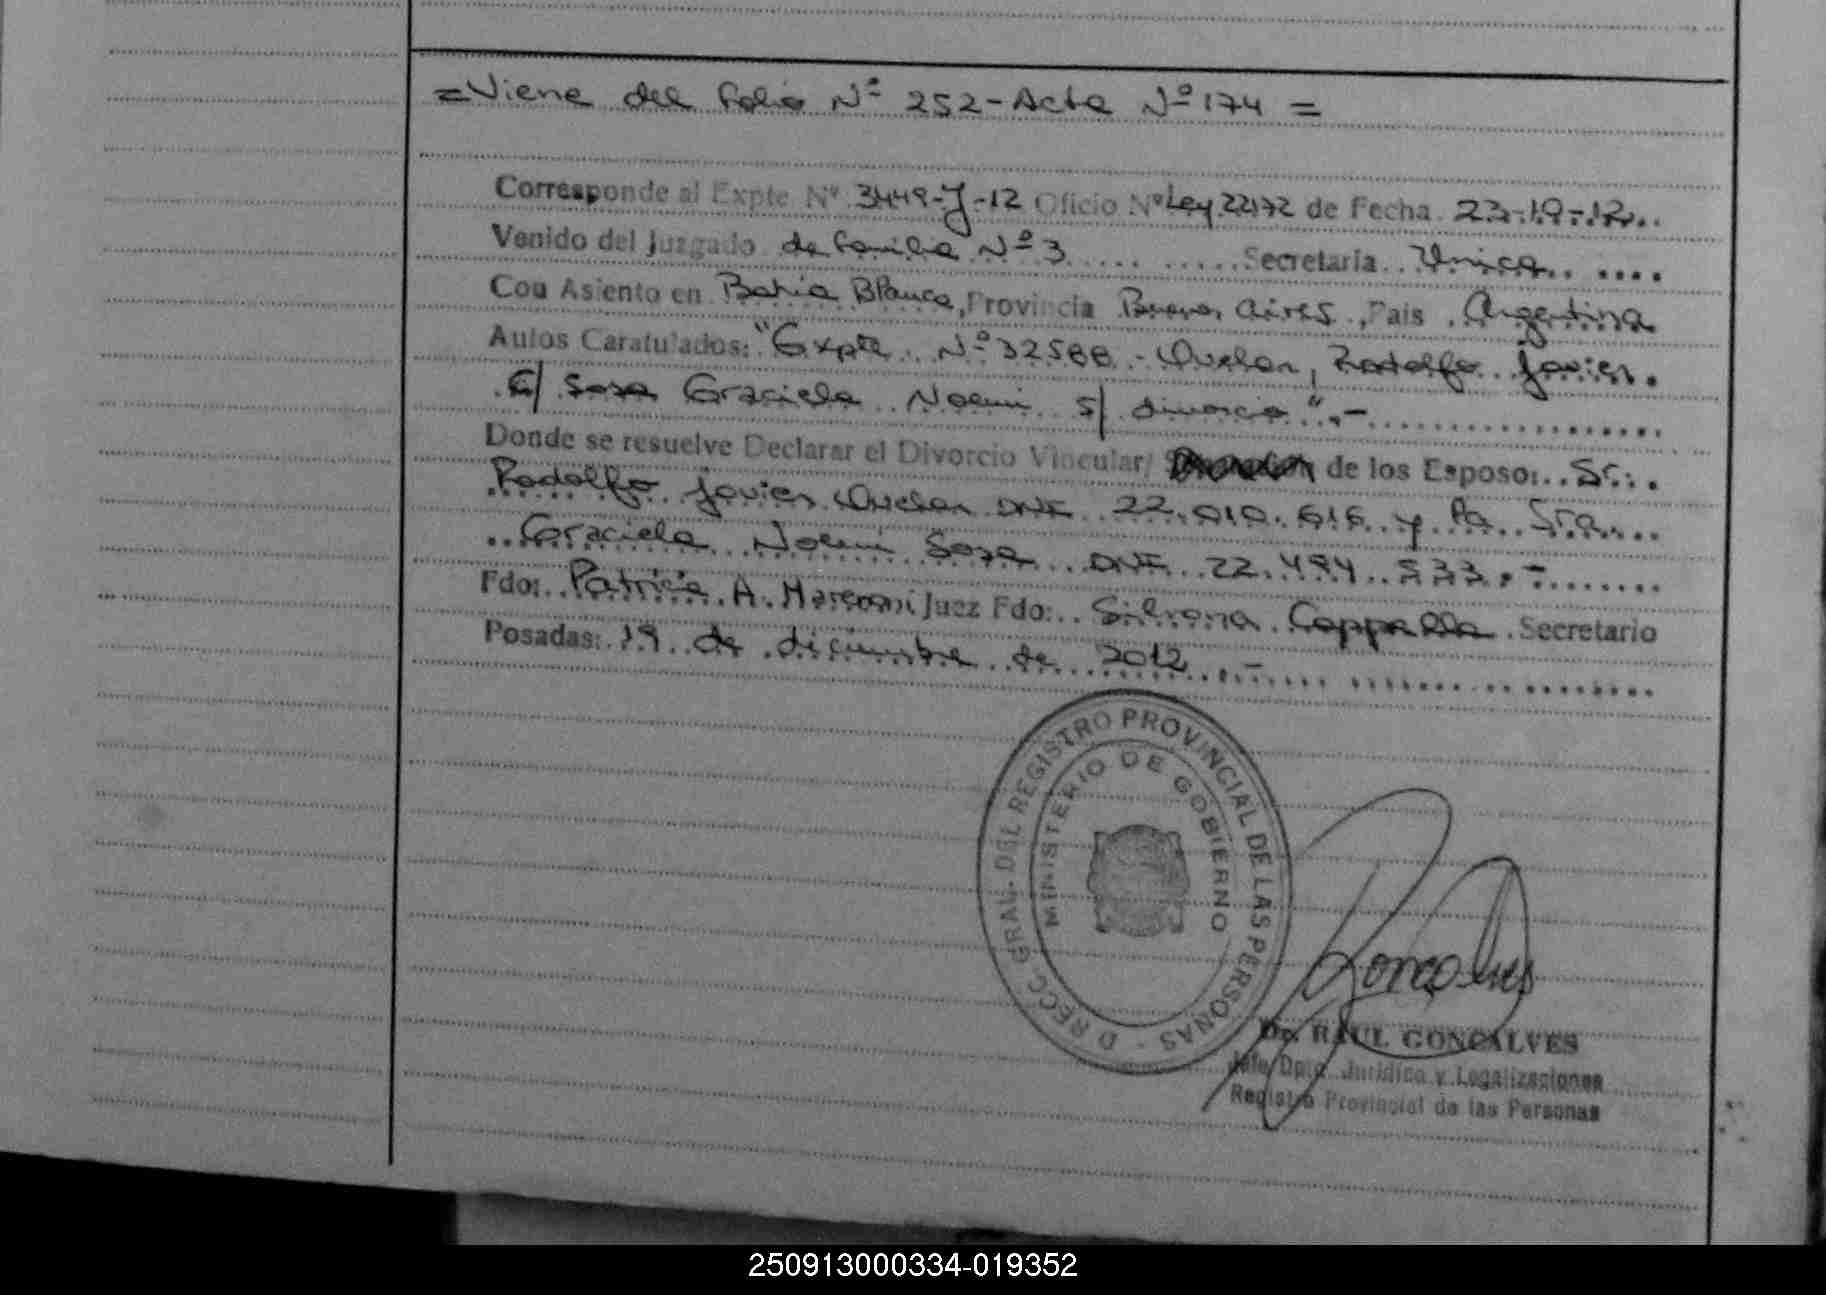 = Viene del folio Nº 252 - Acta Nº 174 =
Corresponde al Expte Nº 3449-J-12 Oficio Nº Ley 22172 de Fecha 23-10-12
Venido del Juzgado de familia Nº 3 Secretaria Unica
Con Asiento en Bahia Blanca, Provincia Buenos Aires, Pais Argentina
Autos Caratulados: "Expte Nº 32588 - Rodolfo Javier
C/ Sosa Graciela Noemi S/ divorcio".-
Donde se resuelve Declarar el Divorcio Vincular/ de los Esposo: Sr.
Rodolfo Javier DNI 22.010.616 y la Sra.
Graciela Noemi Sosa DNI 22.494.533.-
Fdo: Patricia A. Marconi Juez Fdo: Silvana Coppella Secretario
Posadas: 19 de diciembre de 2012.-
DIRECC. GRAL. DEL REGISTRO PROVINCIAL DE LAS PERSONAS -
MINISTERIO DE GOBIERNO
Goncalves
Dr. RAUL GONCALVES
Jefe Dpto. Juridico y Legalizaciones
Registro Provincial de las Personas
250913000334-019352